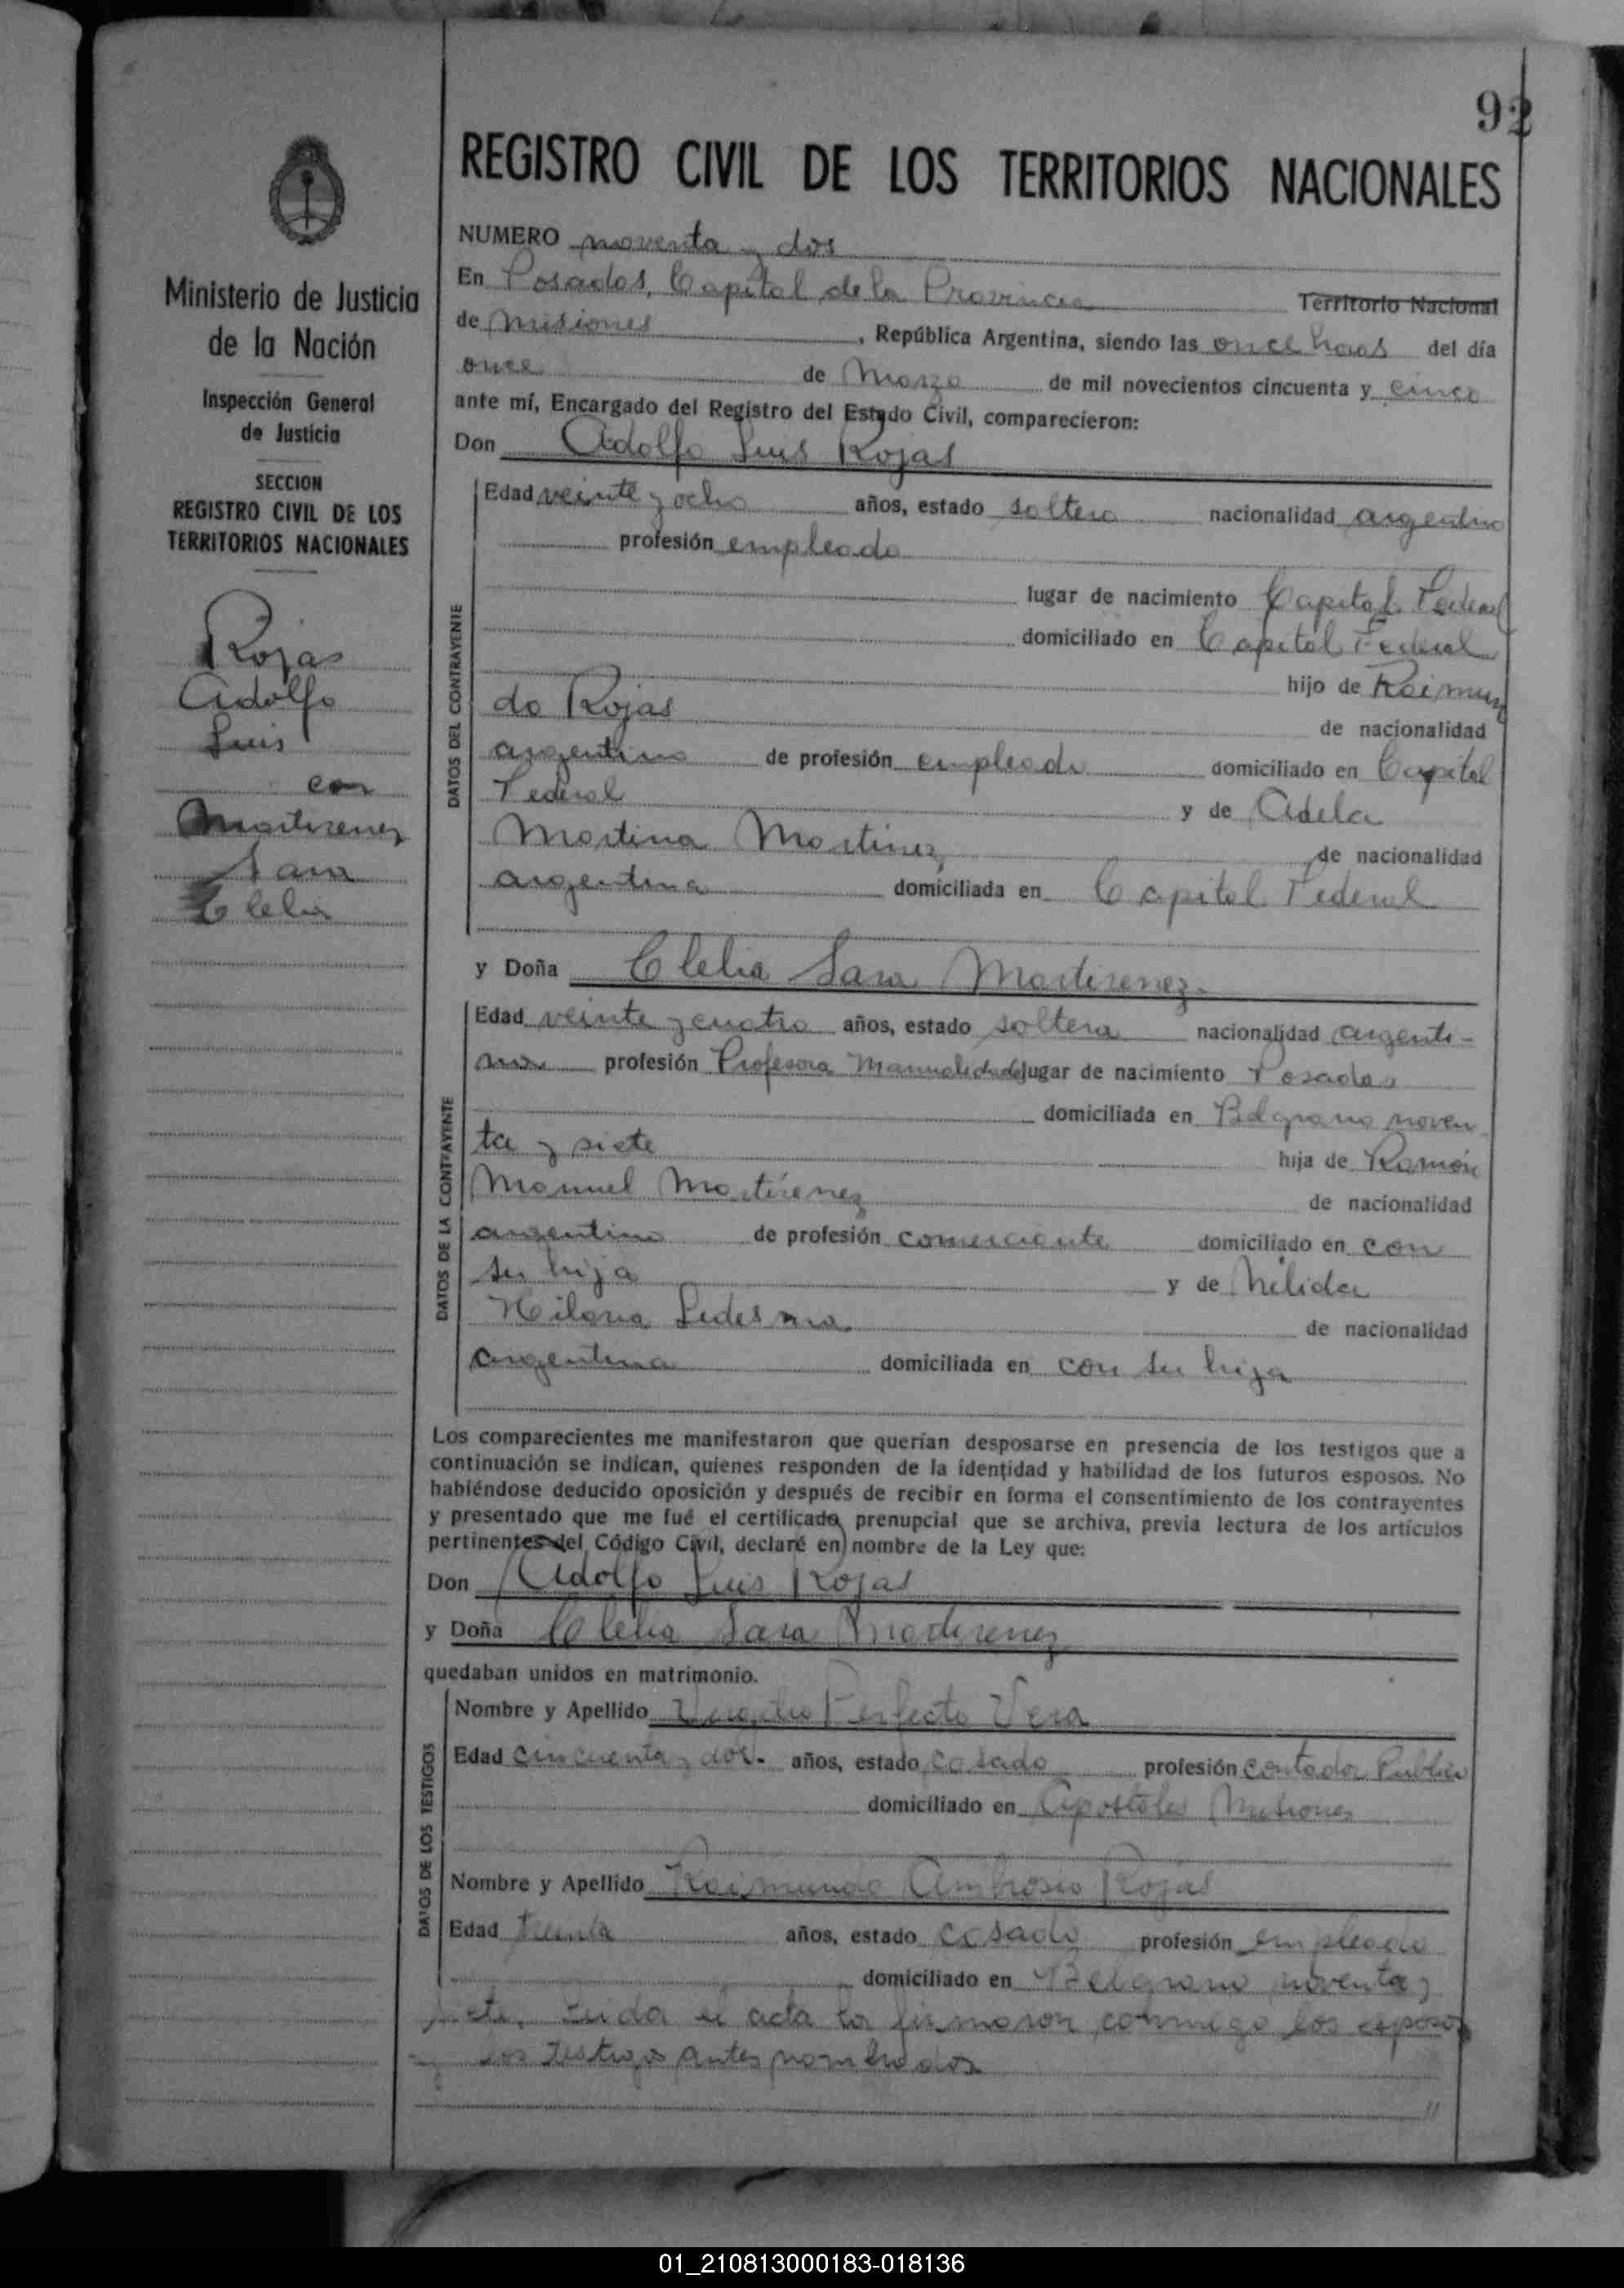 92
REGISTRO CIVIL DE LOS TERRITORIOS NACIONALES
Ministerio de Justicia
de la Nación
Inspección General
de Justicia
SECCION
REGISTRO CIVIL DE LOS
TERRITORIOS NACIONALES
Rojas
Adolfo
Luis
con
Martirenez
Sara
Clelia
NUMERO noventa y dos
En Posadas, Capital de la Provincia Territorio Nacional
de Misiones, República Argentina, siendo las once horas del día
once de Marzo de mil novecientos cincuenta y cinco
ante mí, Encargado del Registro del Estado Civil, comparecieron:
Don Adolfo Luis Rojas
DATOS DEL CONTRAYENTE
Edad veinte y ocho años, estado soltero nacionalidad argentino
profesión empleado
lugar de nacimiento Capital Federal
domiciliado en Capital Federal
hijo de Raimun
do Rojas de nacionalidad
argentino de profesión empleado domiciliado en Capital
Federal y de Adela
Martina Martinez de nacionalidad
argentina domiciliada en Capital Federal
y Doña Clelia Sara Martirenez
DATOS DE LA CONTRAYENTE
Edad veinte y cuatro años, estado soltera nacionalidad argenti-
na profesión Profesora Manualidades lugar de nacimiento Posadas
domiciliada en Belgrano noven
ta y siete hija de Ramón
Manuel Martírenez de nacionalidad
argentino de profesión comerciante domiciliado en con
su hija y de Nélida
Hilaria Ledesma de nacionalidad
argentina domiciliada en con su hija
Los comparecientes me manifestaron que querían desposarse en presencia de los testigos que a
continuación se indican, quienes responden de la identidad y habilidad de los futuros esposos. No
habiéndose deducido oposición y después de recibir en forma el consentimiento de los contrayentes
y presentado que me fué el certificado prenupcial que se archiva, previa lectura de los artículos
pertinentes del Código Civil, declaré en nombre de la Ley que:
Don Adolfo Luis Rojas
y Doña Clelia Sara Martirenez
quedaban unidos en matrimonio.
DATOS DE LOS TESTIGOS
Nombre y Apellido Perfecto Vera
Edad cincuenta y dos. años, estado casado profesión contador Publico
domiciliado en Apostoles Misiones
Nombre y Apellido Raimundo Ambrosio Rojas
Edad treinta años, estado casado profesión empleado
domiciliado en Belgrano noventa y
siete. Leida el acta la firmaron conmigo los esposos
y los testigos antes nombrados
01_210813000183-018136